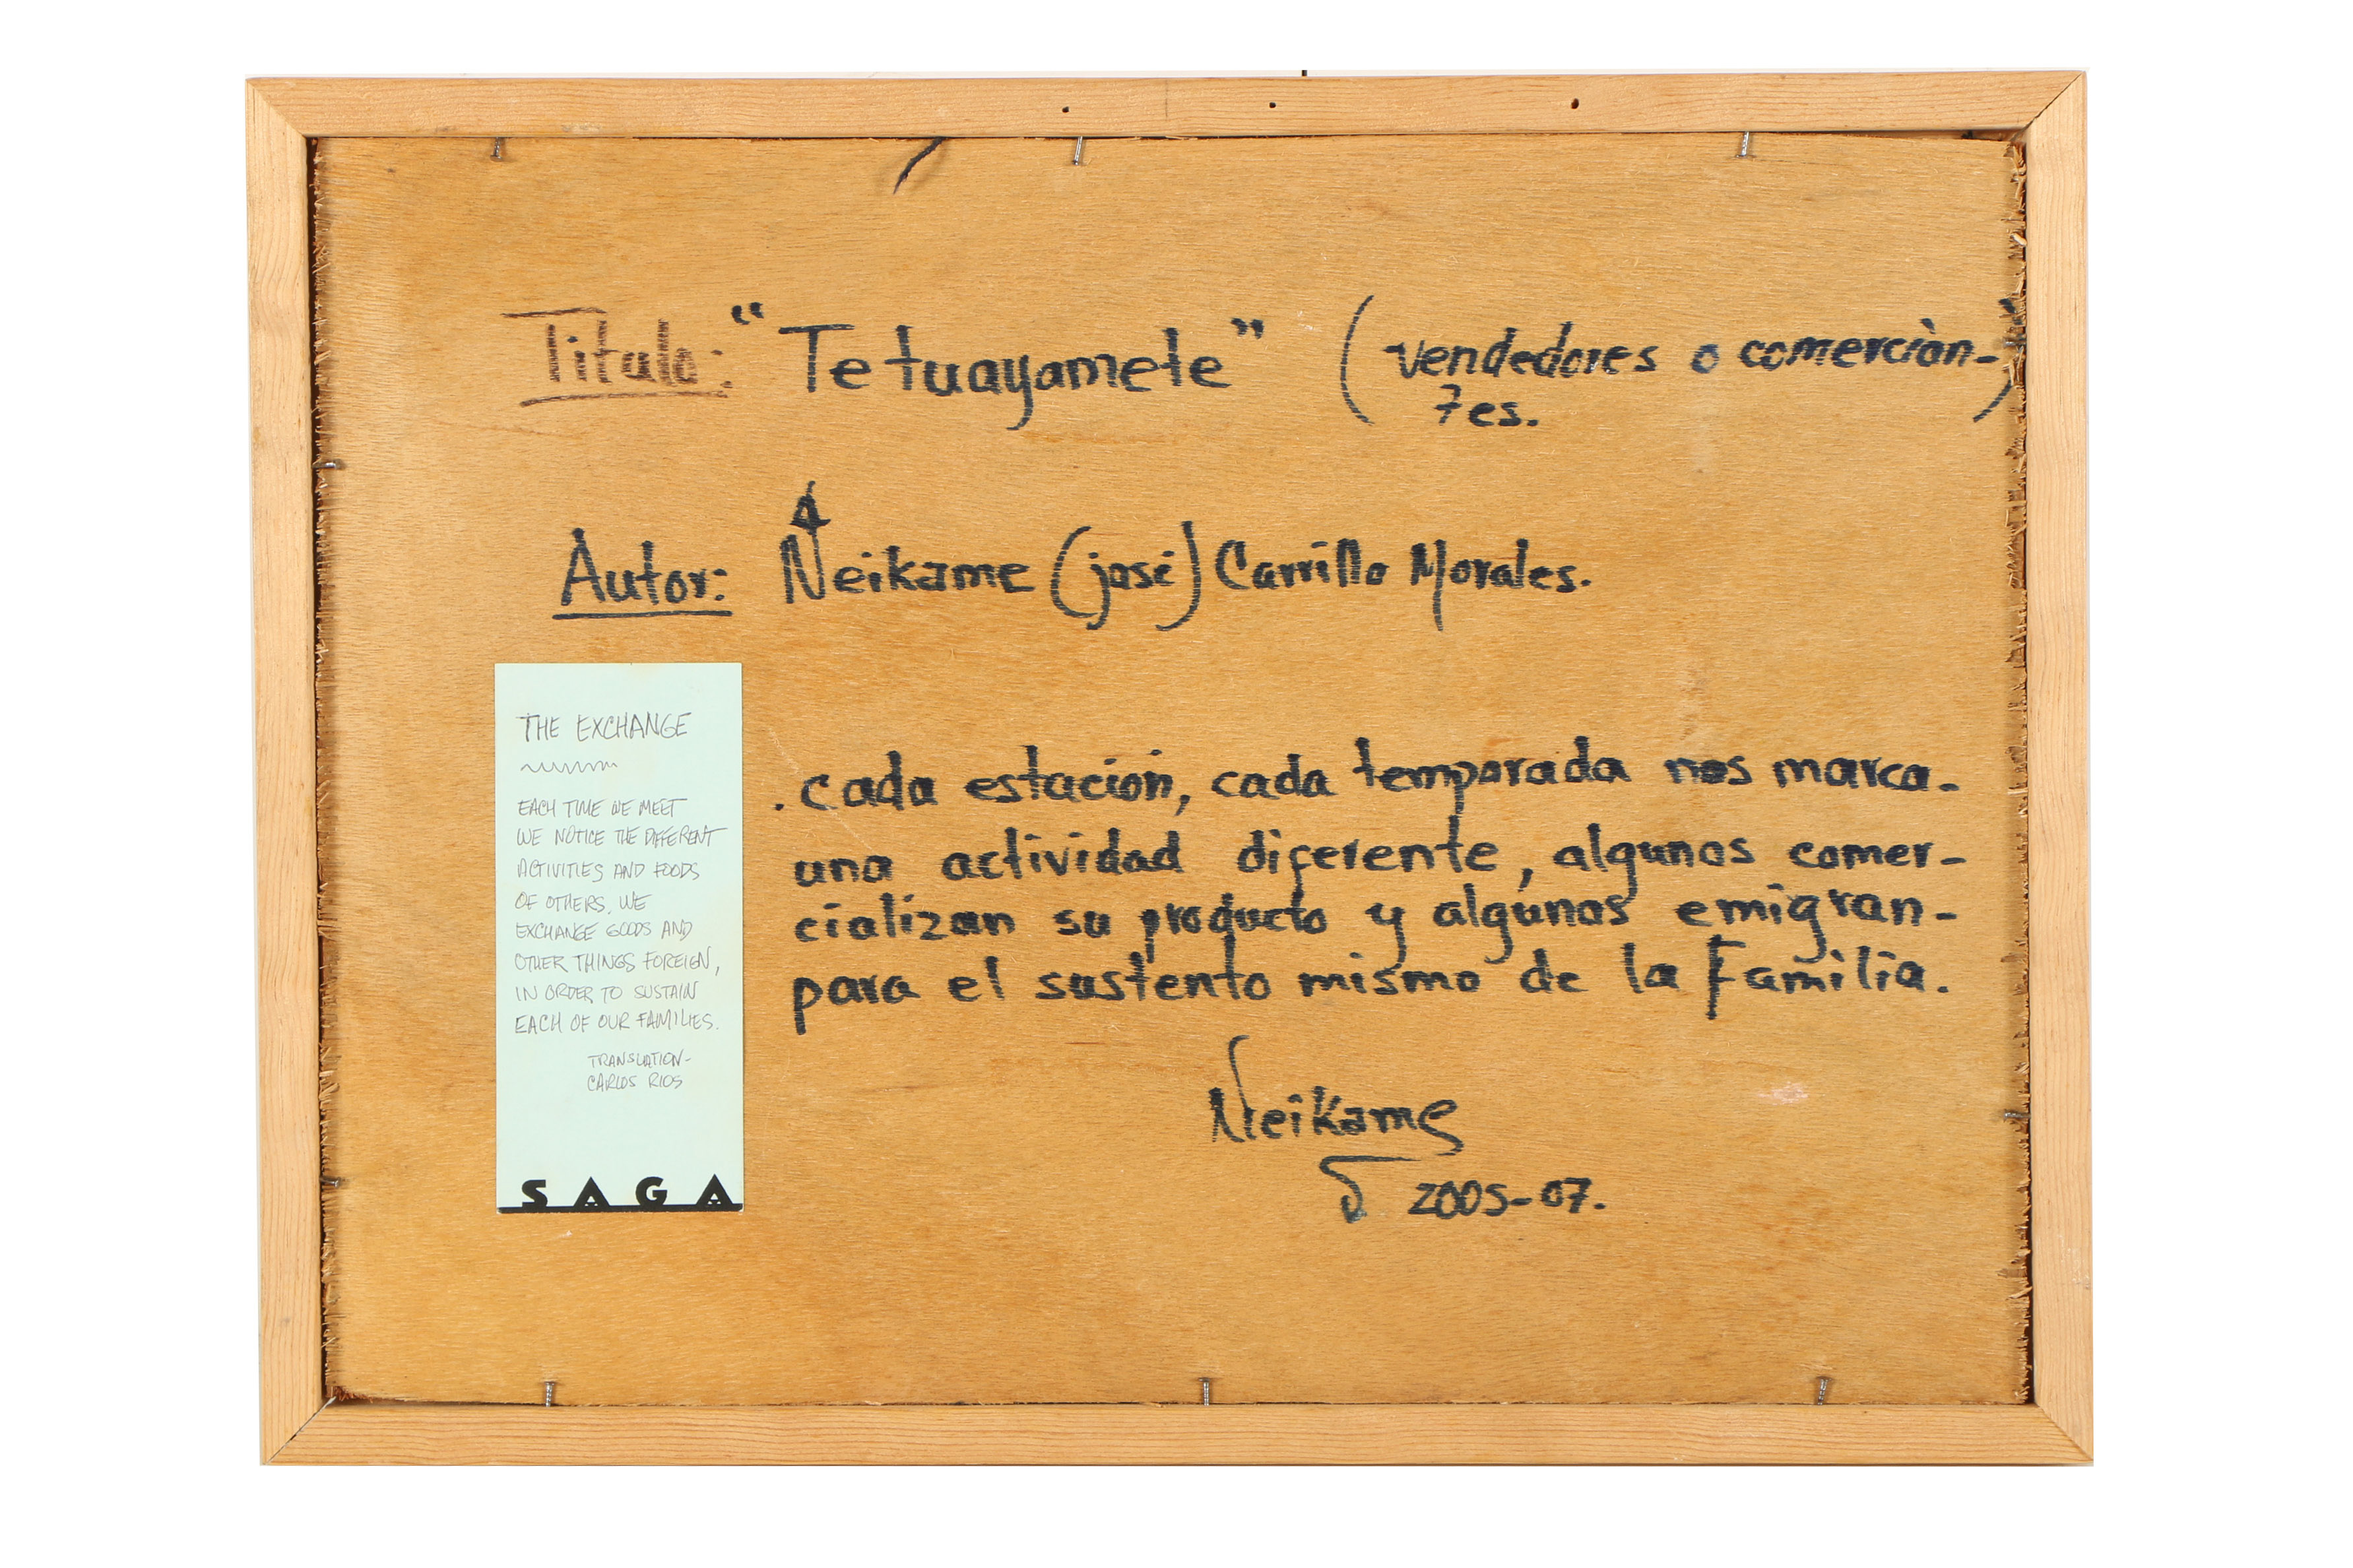 Titulo: "Tetuayamete" (vendedores o comerciàn-
tes.)
Autor: Neikame (josé) Carrillo Morales.
. cada estación, cada temporada nos marca.
una actividad diferente, algunos comer-
cializan su producto y algunos emigran-
para el sustento mismo de la Familia.
Neikame
2005-07.
THE EXCHANGE
EACH TIME WE MEET
WE NOTICE THE DIFFERENT
ACTIVITIES AND FOODS
OF OTHERS. WE
EXCHANGE GOODS AND
OTHER THINGS FOREIGN,
IN ORDER TO SUSTAIN
EACH OF OUR FAMILIES.
TRANSLATION-
CARLOS RIOS
SAGA